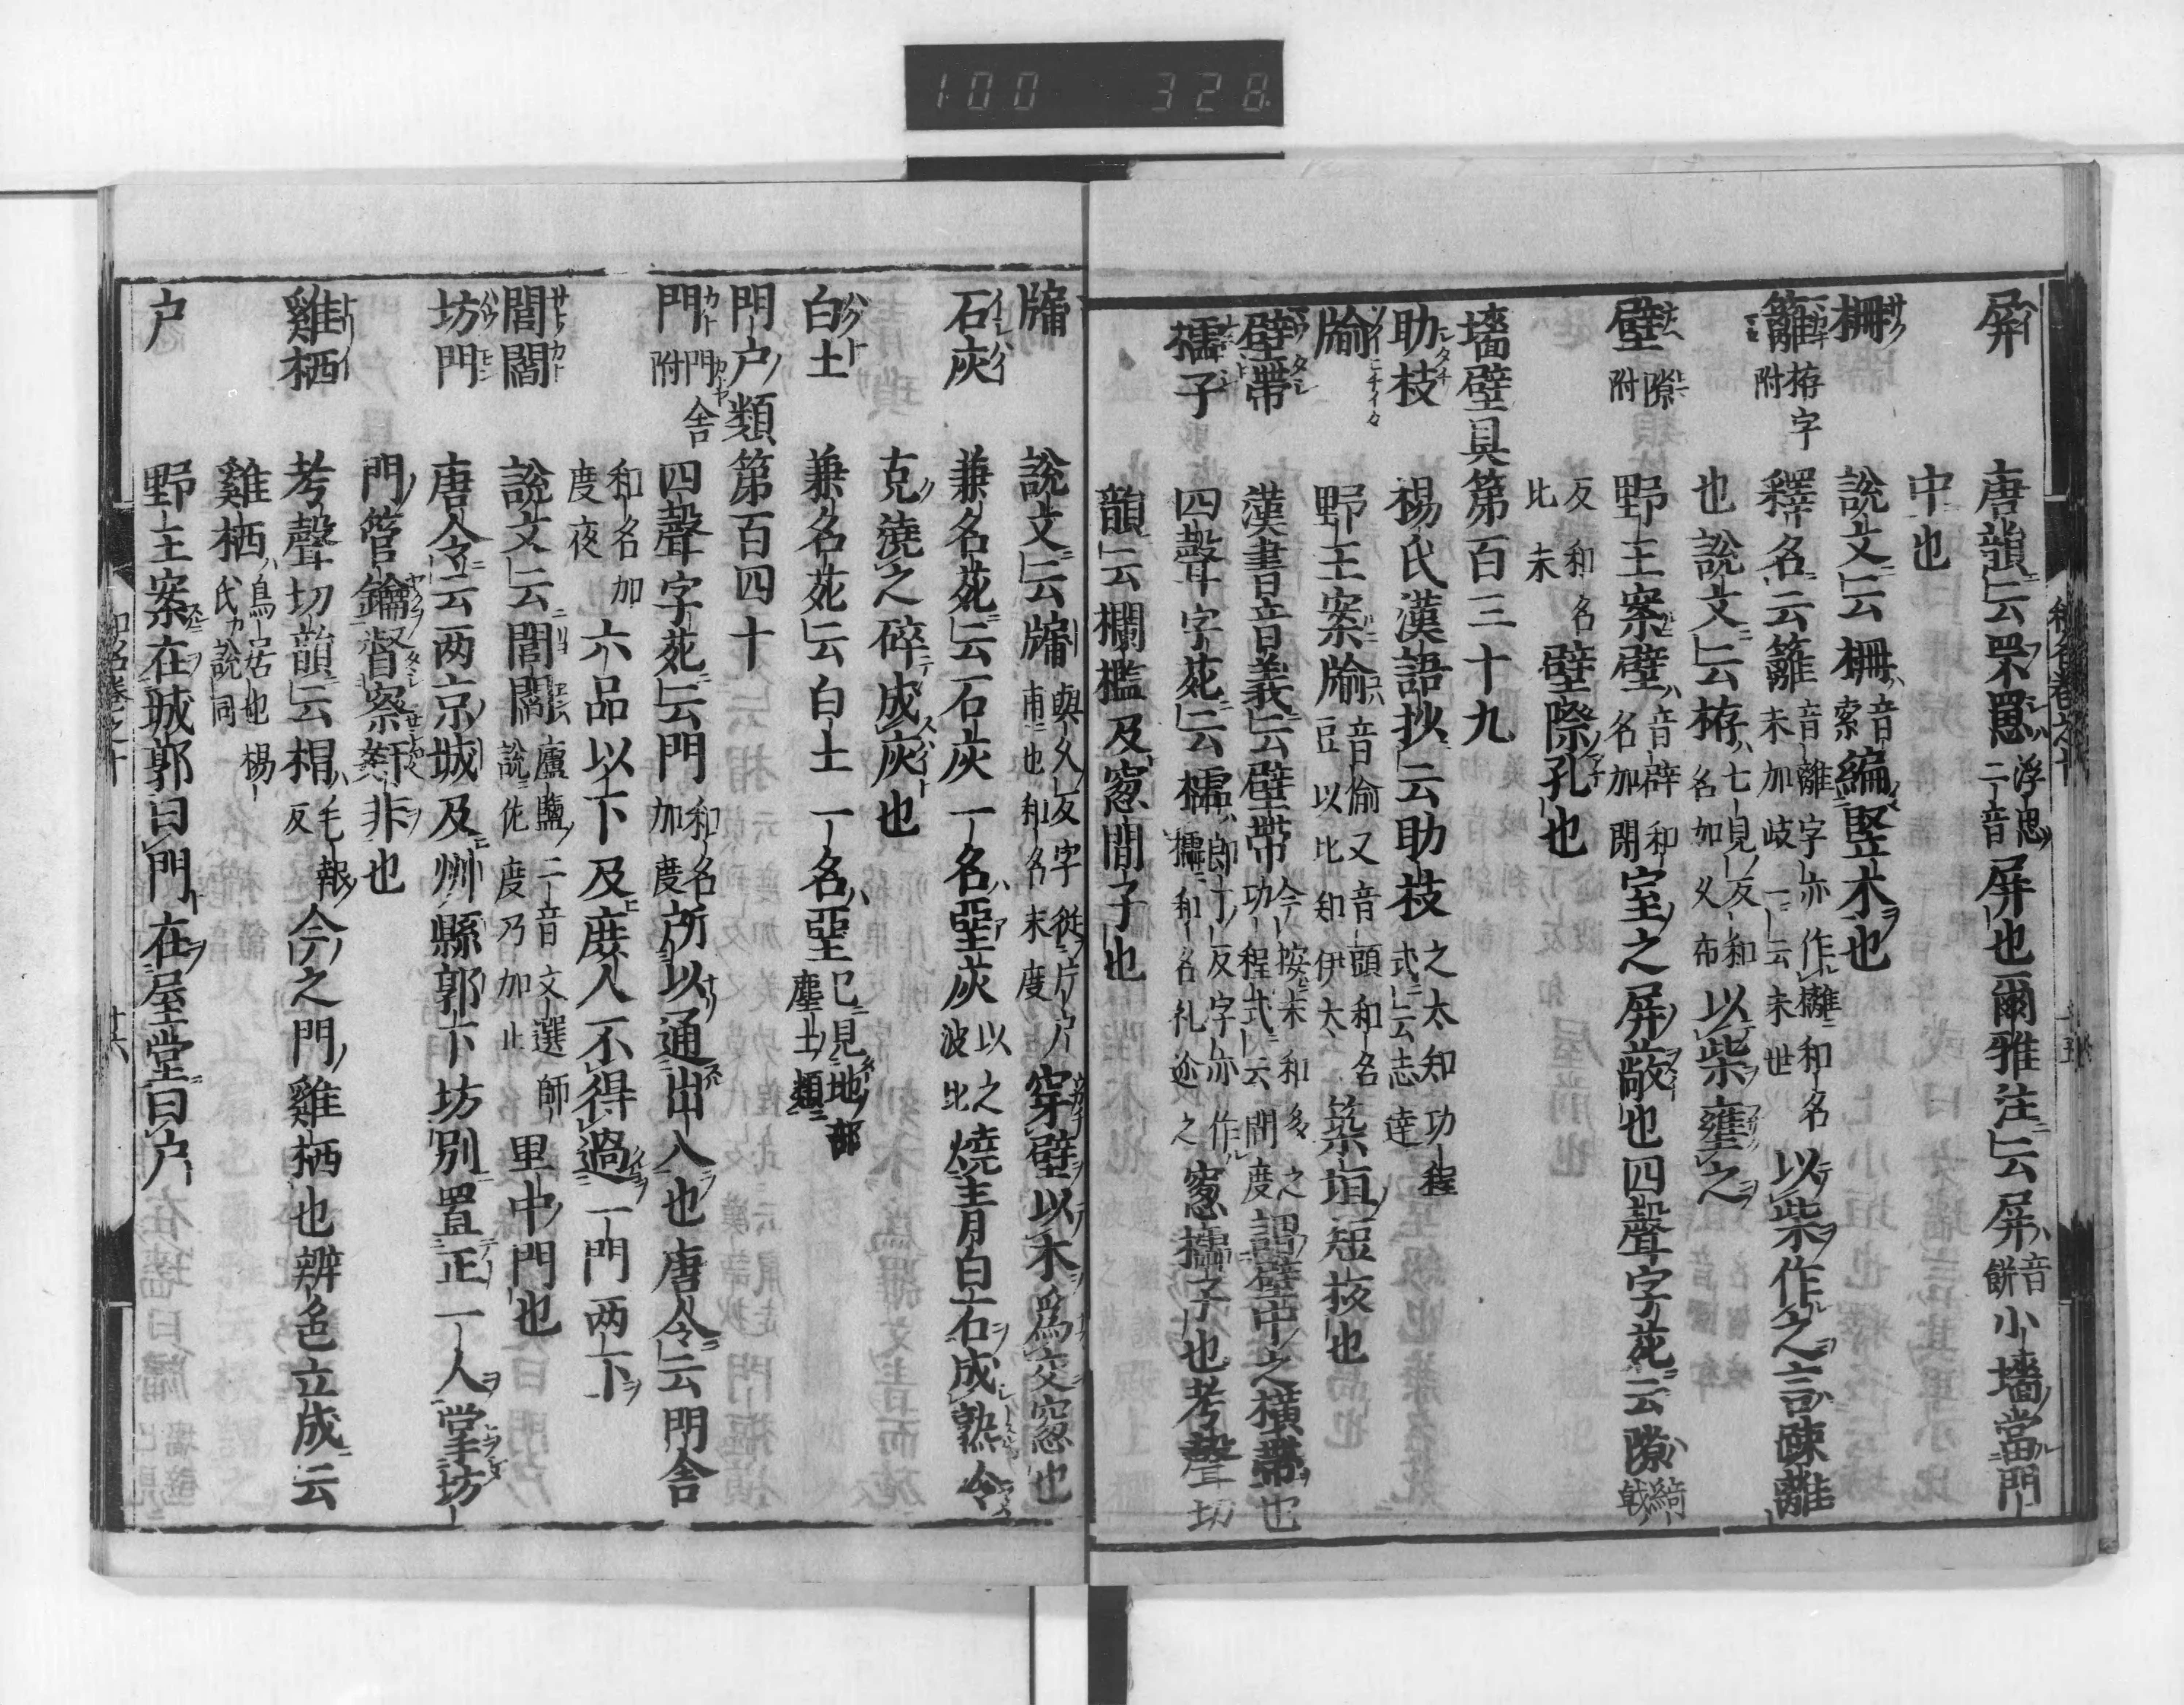 100 328
屏 唐韻云罘罳浮思二音屏也爾雅注云屏音餅小墻當門
中也
柵 説文云柵音索編竪木也
籬栫字附 釋名云籬音離字亦作㰚和名末加岐一云末世以柴作之言疎離
也説文云栫七見反和名加久布以柴壅之
壁隙附 野王案壁音辟和名加閇室之屏蔽也四聲字苑云隙綺戟
反和名比末壁際孔也
墻壁具第百三十九
助枝 楊氏漢語抄云助枝之太知功程式云志達
牏 野王案牏音偷又音頭和名以比知伊太築垣短板也
壁帶 漢書音義云壁帶今按末和多之功程式云間度謂壁中之横帶也
欞子 四聲字苑云欞郎丁反字亦作櫺和名礼迩之窓櫺子也考聲切
韻云欄檻及窓間子也
牖 説文云牖與久反字從片戸甫也和名末度穿壁以木爲交窓也
石灰 兼名苑云石灰一名堊灰以之波比燒青白石成熟冷
克澆之碎成灰也
白土 兼名苑云白土一名堊已見地部塵土類
門戸類第百四十
門門舍附 四聲字苑云門和名加度所以通出入也唐令云門舍
和名加度夜六品以下及庶人不得過一門兩下
閭閻 説文云閭閻廬鹽二音文選師説佐度乃加止里中門也
坊門 唐令云两京城及州縣郭下坊別置正一人掌坊
門管鑰督察姧非也
雞栖 考聲切韻云楣毛報反今之門雞栖也辨色立成云
雞栖鳥居也楊氏説同
戸 野王案在城郭曰門在屋堂曰戸